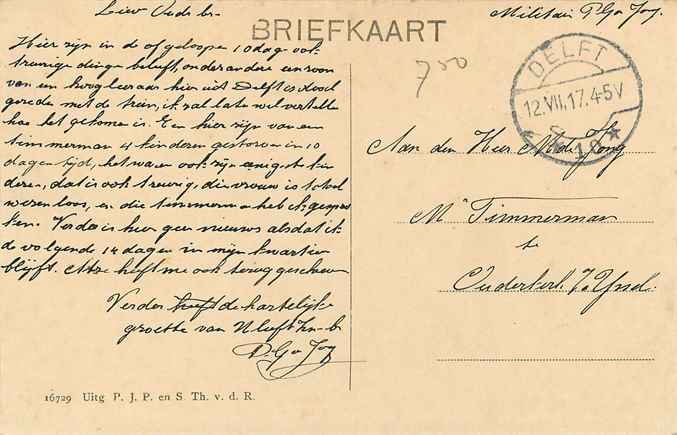 Lieve Ouders
BRIEFKAART
Militair P Ga Jong.
Hier zijn in de af geloopen 10 dage ook
treurige dinge beleeft, onder andere een zoon
van een hoogleeraar hier uit Delft is dood
gereden met de trein, ik zal late wel vertelle
hoe het gekome is. En hier zijn van een
timmerman 4 kinderen gestorven in 10
dagen tijd, het ware ook zijn eenigste kin
deren, dat is ook treurig, die vrouw is totaal
wezenloos, en die timmerman heb ik gespro
ken. Verder is hier geen nieuws als dat ik
de volgende 14 dagen in mijn kwartier
blijft. heeft me ook terug geschreven
Verder de hartelijke
groette van U
P. Ga Jong
750
DELFT
12.VII.17.4-5V
10
Aan den Heer M de Jong
Mr Timmerman
te
Ouderkerk a/d Yssel.
16729 Uitg P. J. P. en S. Th. v. d. R.